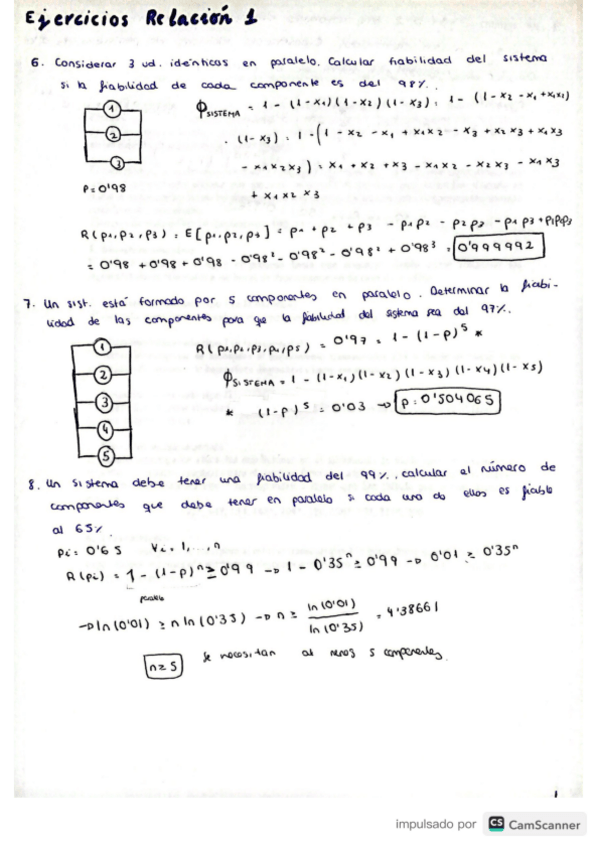 Ejercicios Relación 1
6. Considerar 3 ud. idénticos en paralelo. Calcular fiabilidad del sistema
si la fiabilidad de cada componente es del 98%.
1
2
3
P=0'98
ϕSISTEMA = 1 - (1-x1)(1-x2)(1-x3) = 1 - (1-x2-x1+x1x2)
· (1-x3) = 1 - (1 - x2 - x1 + x1x2 - x3 + x2x3 + x1x3
- x1x2x3) = x1 + x2 + x3 - x1x2 - x2x3 - x1x3
+ x1x2x3
R(p1,p2,p3) = E[p1,p2,p3] = p1 + p2 + p3 - p1p2 - p2p3 - p1p3 + p1p2p3
= 0'98 + 0'98 + 0'98 - 0'98² - 0'98² - 0'98² + 0'98³ = 0'999992
7. Un sist. está formado por 5 componentes en paralelo. Determinar la fiabi-
lidad de las componentes para qe la fiabilidad del sistema sea del 97%.
1
2
3
4
5
R(p1,p2,p3,p4,p5) = 0'97 = 1 - (1-p)⁵ *
ϕSISTEMA = 1 - (1-x1)(1-x2)(1-x3)(1-x4)(1-x5)
* (1-p)⁵ = 0'03 → p = 0'504065
8. Un sistema debe tener una fiabilidad del 99%, calcular el número de
componentes que debe tener en paralelo si cada uno de ellos es fiable
al 65%
pi = 0'65 ∀i = 1,...,n
R(pi) = 1 - (1-p)ⁿ ≥ 0'99 → 1 - 0'35ⁿ ≥ 0'99 → 0'01 ≥ 0'35ⁿ
paralelo
→ ln(0'01) ≥ n ln(0'35) → n ≥ ln(0'01) / ln(0'35) = 4'38661
n≥5 Se necesitan al menos 5 componentes.
1
impulsado por CS CamScanner